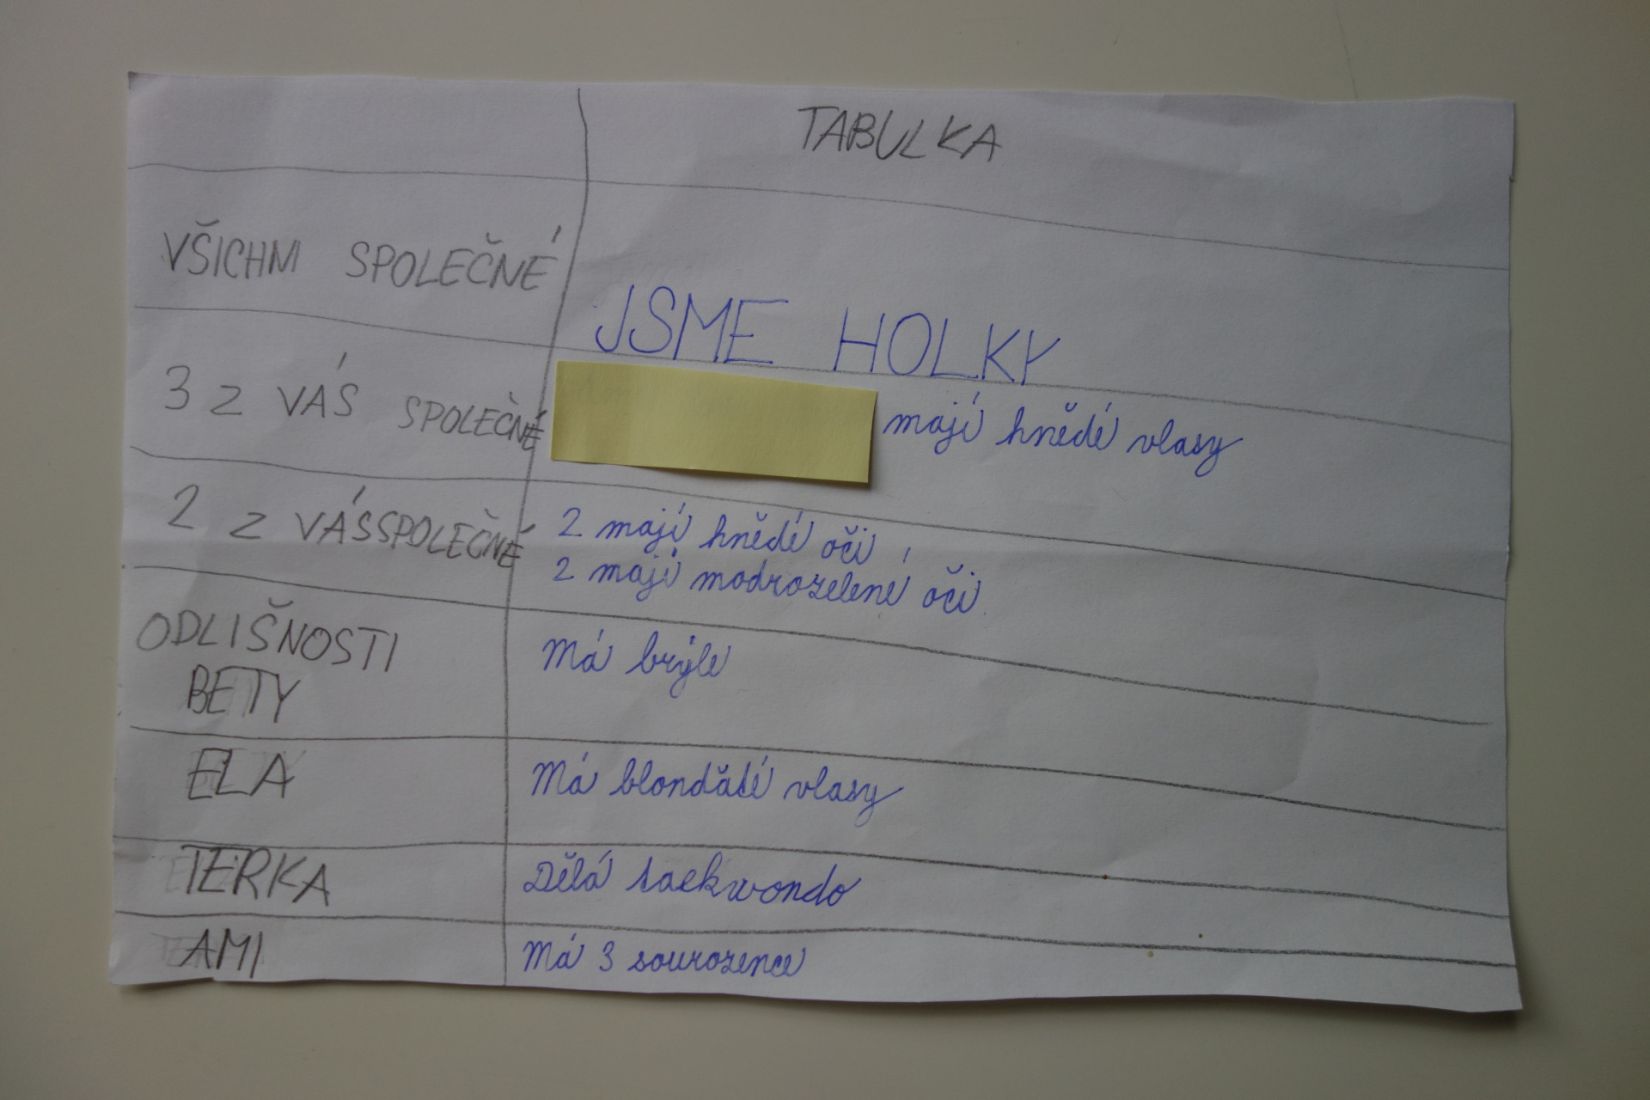 TABULKA
VŠICHNI SPOLEČNÉ
JSME HOLKY
3 Z VÁS SPOLEČNÉ
mají hnědé vlasy
2 Z VÁS SPOLEČNÉ
2 mají hnědé oči
2 mají modrozelené oči
ODLIŠNOSTI
BETY
Má brýle
ELA
Má blonďaté vlasy
TERKA
Dělá taekwondo
AMI
Má 3 sourozence